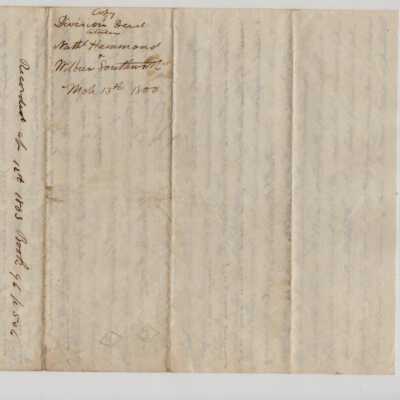 Copy
Division Deed
between
Nathl Hammond
&
Wilber Southworth
13th 1800
Recorded 12th 1803 Book 96 p 506